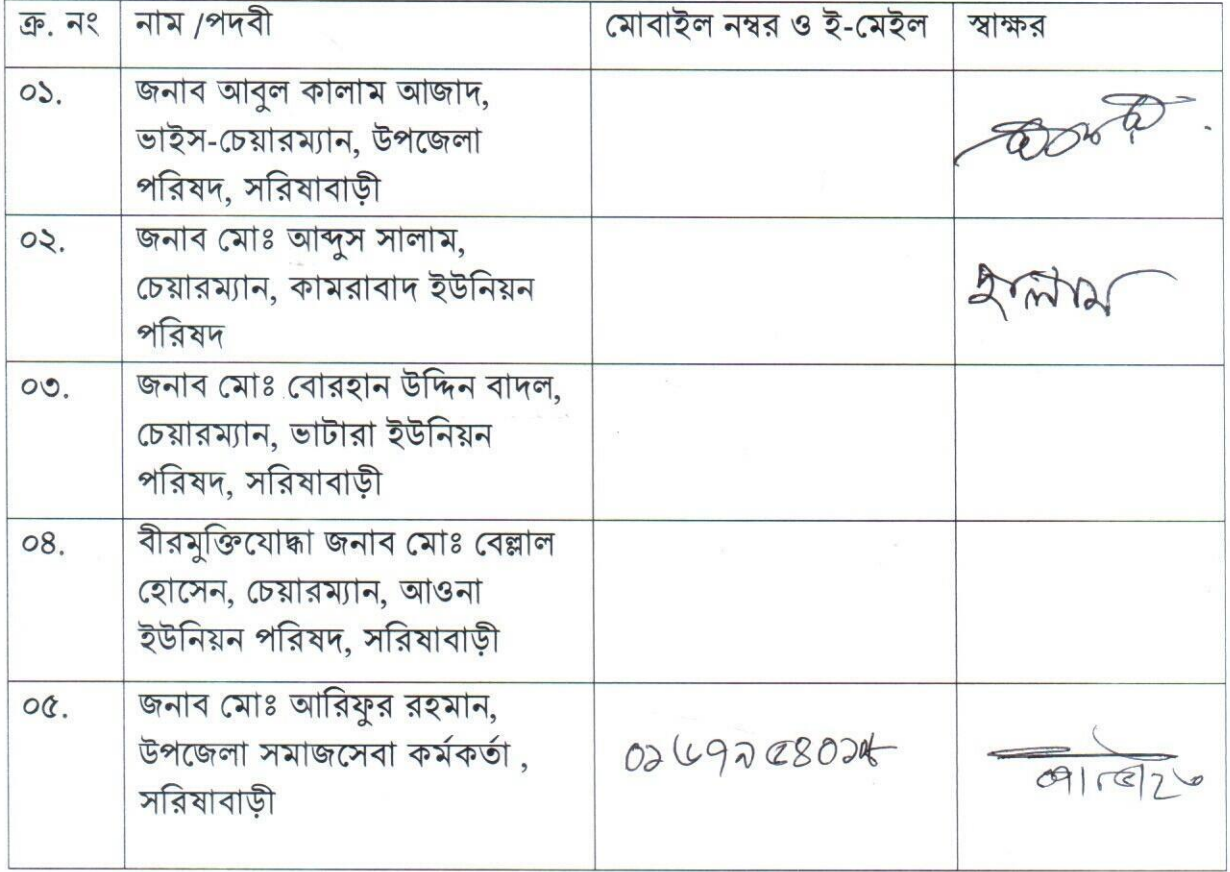 ক্র. নং নাম /পদবী মোবাইল নম্বর ও ই-মেইল স্বাক্ষর
০১. জনাব আবুল কালাম আজাদ,
ভাইস-চেয়ারম্যান, উপজেলা
পরিষদ, সরিষাবাড়ী
০২. জনাব মোঃ আব্দুস সালাম,
চেয়ারম্যান, কামরাবাদ ইউনিয়ন
পরিষদ
০৩. জনাব মোঃ বোরহান উদ্দিন বাদল,
চেয়ারম্যান, ভাটারা ইউনিয়ন
পরিষদ, সরিষাবাড়ী
০৪. বীরমুক্তিযোদ্ধা জনাব মোঃ বেল্লাল
হোসেন, চেয়ারম্যান, আওনা
ইউনিয়ন পরিষদ, সরিষাবাড়ী
০৫. জনাব মোঃ আরিফুর রহমান,
উপজেলা সমাজসেবা কর্মকর্তা ,
সরিষাবাড়ী